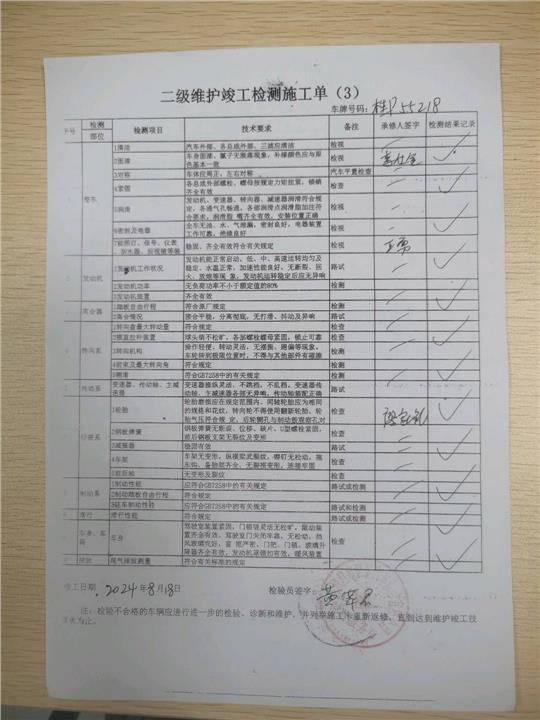 二级维护竣工检测施工单（3）
车牌号码：桂P55218
序号 检测部位 检测项目 技术要求 备注 承修人签字 检测结果记录
整车 1清洁 汽车外部、各总成外部、三滤应清洁 检视
2面漆 车身面漆、腻子无脱落现象，补漆颜色应与原色基本一致 检视
3对称 车体应周正，左右对称 汽车平置检查
4紧固 各总成外部螺栓、螺母按规定力矩扭紧，锁销齐全有效 检查
5润滑 发动机、变速器、转向器、减速器润滑符合规定，各通气孔畅通，各部润滑点润滑脂加注符合要求，润滑脂嘴齐全有效，安装位置正确 检视
6密封及电器 全车无油、水、气泄漏，密封良好，电器装置工作可靠，绝缘良好 检视
7前照灯、信号、仪表、刮水器、后视镜等装 稳固、齐全有效符合有关规定 检视
发动机 1发动机工作状况 发动机能正常启动，低、中、高速运转均匀及稳定、水温正常，加速性能良好，无断裂、回火、放炮等现象，发动机运转稳定后应无异响 路试
2发动机功率 无负荷功率不小于额定值的80% 检测
3发动机装置 齐全有效
离合器 1踏板自由行程 符合原厂规定 检测
2离合情况 接合平稳，分离彻底，无打滑、抖动及异响 路试
转向系 1转向盘最大转动量 符合规定 检查
2横直拉杆装置 球头销不松旷，各部螺栓螺母紧固，锁止可靠 检查
3转向机构 操作轻便、转动灵活，无摆振、跑偏等现象。车轮转到极限位置时，不得与其他部件有碰擦 检测
4前束及最大转向角 符合规定 检测
5侧滑 符合GB7258中的有关规定 检测
传动系 变速器、传动轴、主减速器 变速器操纵灵活、不跳挡、不乱档。变速器传动轴、主减速器各部无异响，传动轴装配正确 路试
行驶系 1轮胎 轮胎磨损应在规定范围内，同轴轮胎应为相同的规格和花纹，转向轮不得使用翻新轮胎，轮胎气压符合规定，后轮辋孔与制动鼓观察孔对 检查
2钢板弹簧 钢板弹簧无断裂、位移、缺片、U型螺栓紧固，前后钢板支架无裂纹及变形 检查
3减振器 稳固有效 路试
4车架 车架无变形，纵横梁无裂纹，铆钉无松动，拖车钩、备胎架齐全、无裂损变形、连接牢固 检查
5前后轴 无变形及裂纹 检查
制动系 1制动性能 应符合GB7258中的有关规定 路试或检测
2制动踏板自由行程 符合规定 检测
3驻车制动性能 应符合GB7258中的有关规定 路试和检测
滑行 滑行性能 符合规定 路试或检测
车身、车厢 车身 驾驶室装置紧固，门锁链灵活无松旷，限动装置齐全有效，驾驶室门关闭牢靠，无松动，挡风玻璃完好，窗框严密，门把、门锁、玻璃升降器齐全有效，发动机罩锁扣有效，暖风装置 检查
排放 尾气排放测量 符合有关标准的规定 检测
竣工日期：2024年8月18日 检验员签字：
注：检验不合格的车辆应进行进一步的检验、诊断和维护，并列举施工卡重新返修，直到达到维护竣工技术
为止。